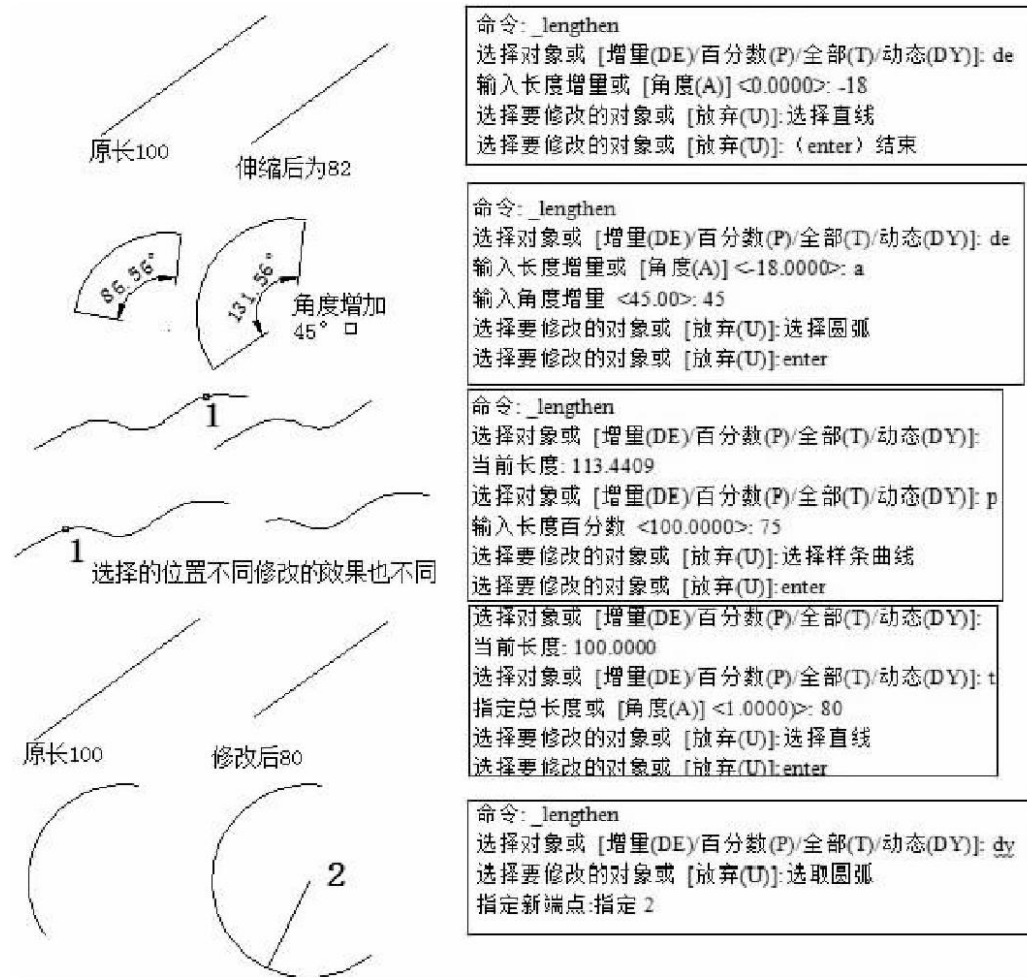 原长100
伸缩后为82
命令: _lengthen
选择对象或 [增量(DE)/百分数(P)/全部(T)/动态(DY)]: de
输入长度增量或 [角度(A)] <0.0000>: -18
选择要修改的对象或 [放弃(U)]:选择直线
选择要修改的对象或 [放弃(U)]:（enter）结束
86.56°
131.56°
角度增加
45°
命令: _lengthen
选择对象或 [增量(DE)/百分数(P)/全部(T)/动态(DY)]: de
输入长度增量或 [角度(A)] <-18.0000>: a
输入角度增量 <45.00>: 45
选择要修改的对象或 [放弃(U)]:选择圆弧
选择要修改的对象或 [放弃(U)]:enter
1
1
选择的位置不同修改的效果也不同
命令: _lengthen
选择对象或 [增量(DE)/百分数(P)/全部(T)/动态(DY)]:
当前长度: 113.4409
选择对象或 [增量(DE)/百分数(P)/全部(T)/动态(DY)]: p
输入长度百分数 <100.0000>: 75
选择要修改的对象或 [放弃(U)]:选择样条曲线
选择要修改的对象或 [放弃(U)]:enter
原长100
修改后80
选择对象或 [增量(DE)/百分数(P)/全部(T)/动态(DY)]:
当前长度: 100.0000
选择对象或 [增量(DE)/百分数(P)/全部(T)/动态(DY)]: t
指定总长度或 [角度(A)] <1.0000)>: 80
选择要修改的对象或 [放弃(U)]:选择直线
选择要修改的对象或 [放弃(U)]:enter
2
命令: _lengthen
选择对象或 [增量(DE)/百分数(P)/全部(T)/动态(DY)]: dy
选择要修改的对象或 [放弃(U)]:选取圆弧
指定新端点:指定 2